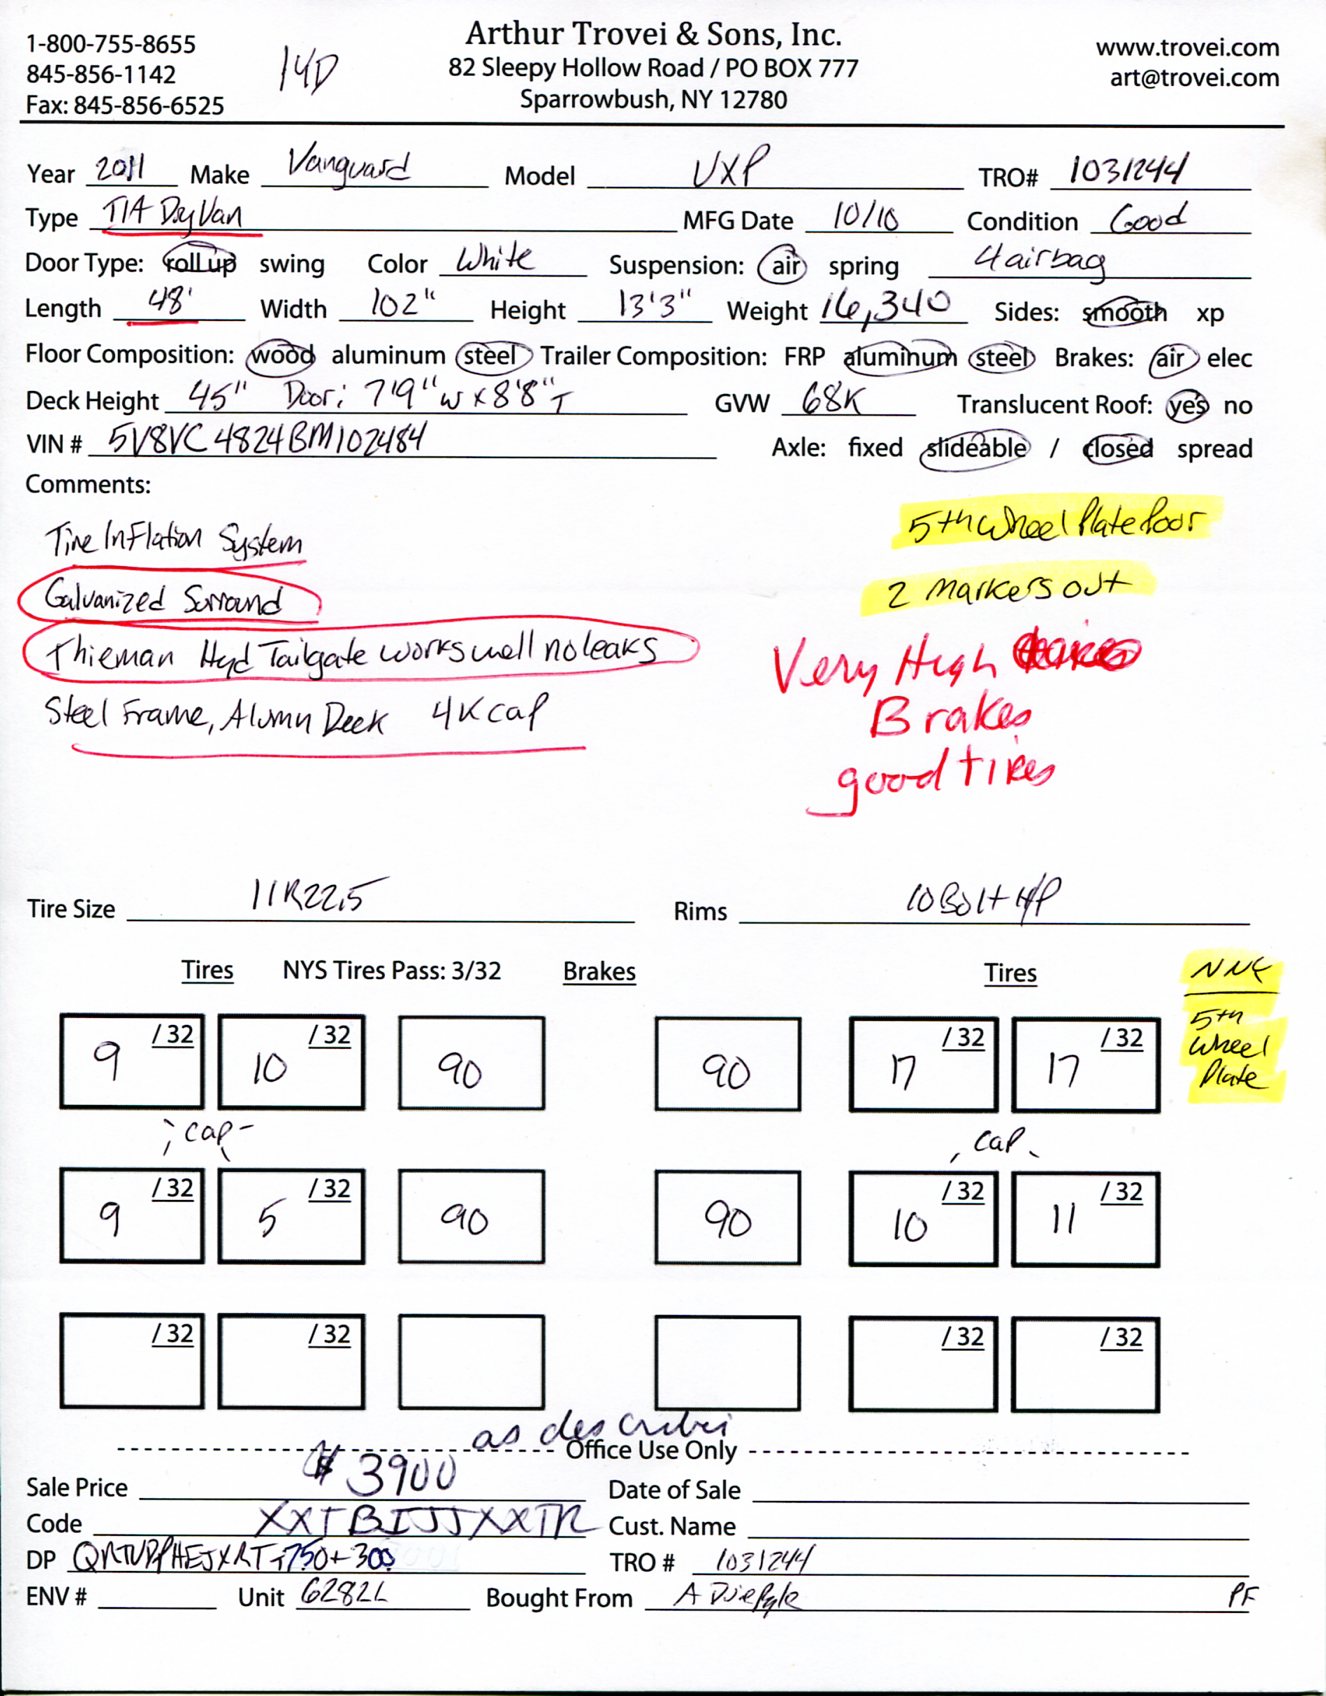 1-800-755-8655
845-856-1142
Fax: 845-856-6525
14D
Arthur Trovei & Sons, Inc.
82 Sleepy Hollow Road / PO BOX 777
Sparrowbush, NY 12780
www.trovei.com
art@trovei.com
Year 2011 Make Vanguard Model VXP TRO# 1031244
Type T/A DryVan MFG Date 10/10 Condition Good
Door Type: roll up swing Color White Suspension: air spring 4 airbag
Length 48' Width 102" Height 13'3" Weight 16,340 Sides: smooth xp
Floor Composition: wood aluminum steel Trailer Composition: FRP aluminum steel Brakes: air elec
Deck Height 45" Door: 7'9"W x 8'8"T GVW 68K Translucent Roof: yes no
VIN # 5V8VC4824BM102484 Axle: fixed slideable / closed spread
Comments:
Tire Inflation System
Galvanized Surround
Thieman Hyd Tailgate works well no leaks
Steel Frame, Alumn Deck 4K cap
5th Wheel Plate Poor
2 Markers out
Very High
Brakes
good tires
Tire Size 11R22.5 Rims 10 Bolt H/P
Tires NYS Tires Pass: 3/32 Brakes Tires
NNY
5th
Wheel
Plate
9 /32 10 /32 90 90 17 /32 17 /32
cap cap
9 /32 5 /32 90 90 10 /32 11 /32
/32 /32 /32 /32
as described
Office Use Only
Sale Price $3900 Date of Sale
Code XXTBIJJXXTR Cust. Name
DP +750+300 TRO # 1031244
ENV # Unit 6282L Bought From A Duie Pyle PF